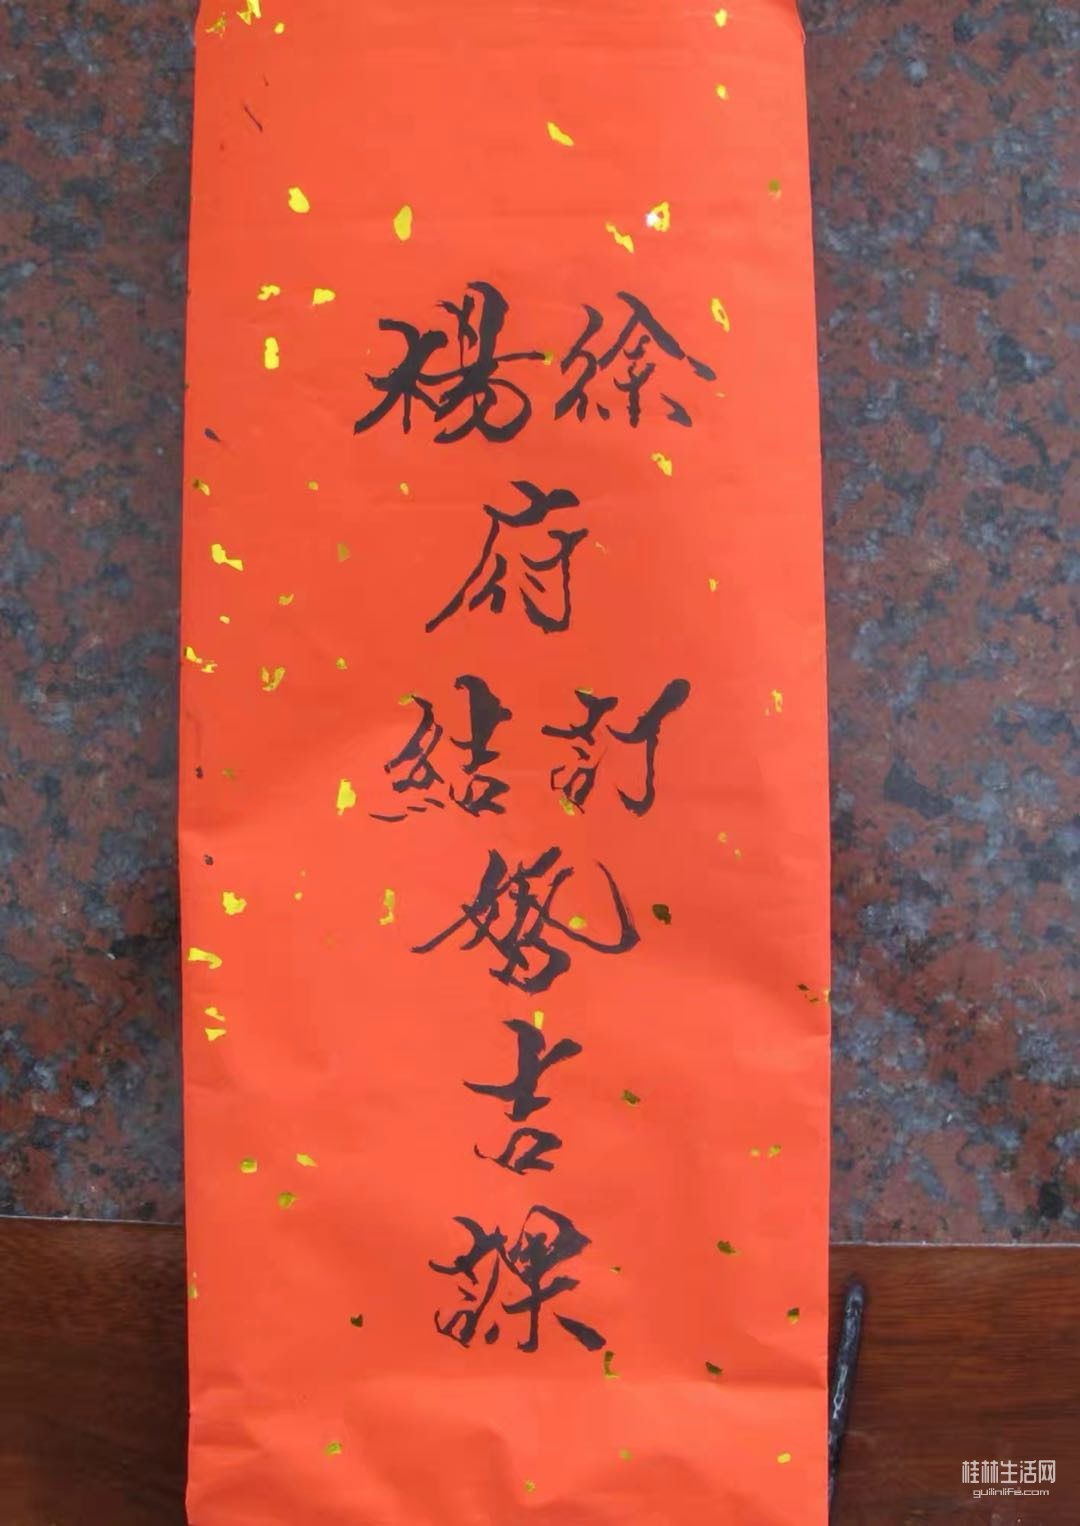 徐楊
府
訂結
婚
吉
課
桂林生活网
guilinlife.com